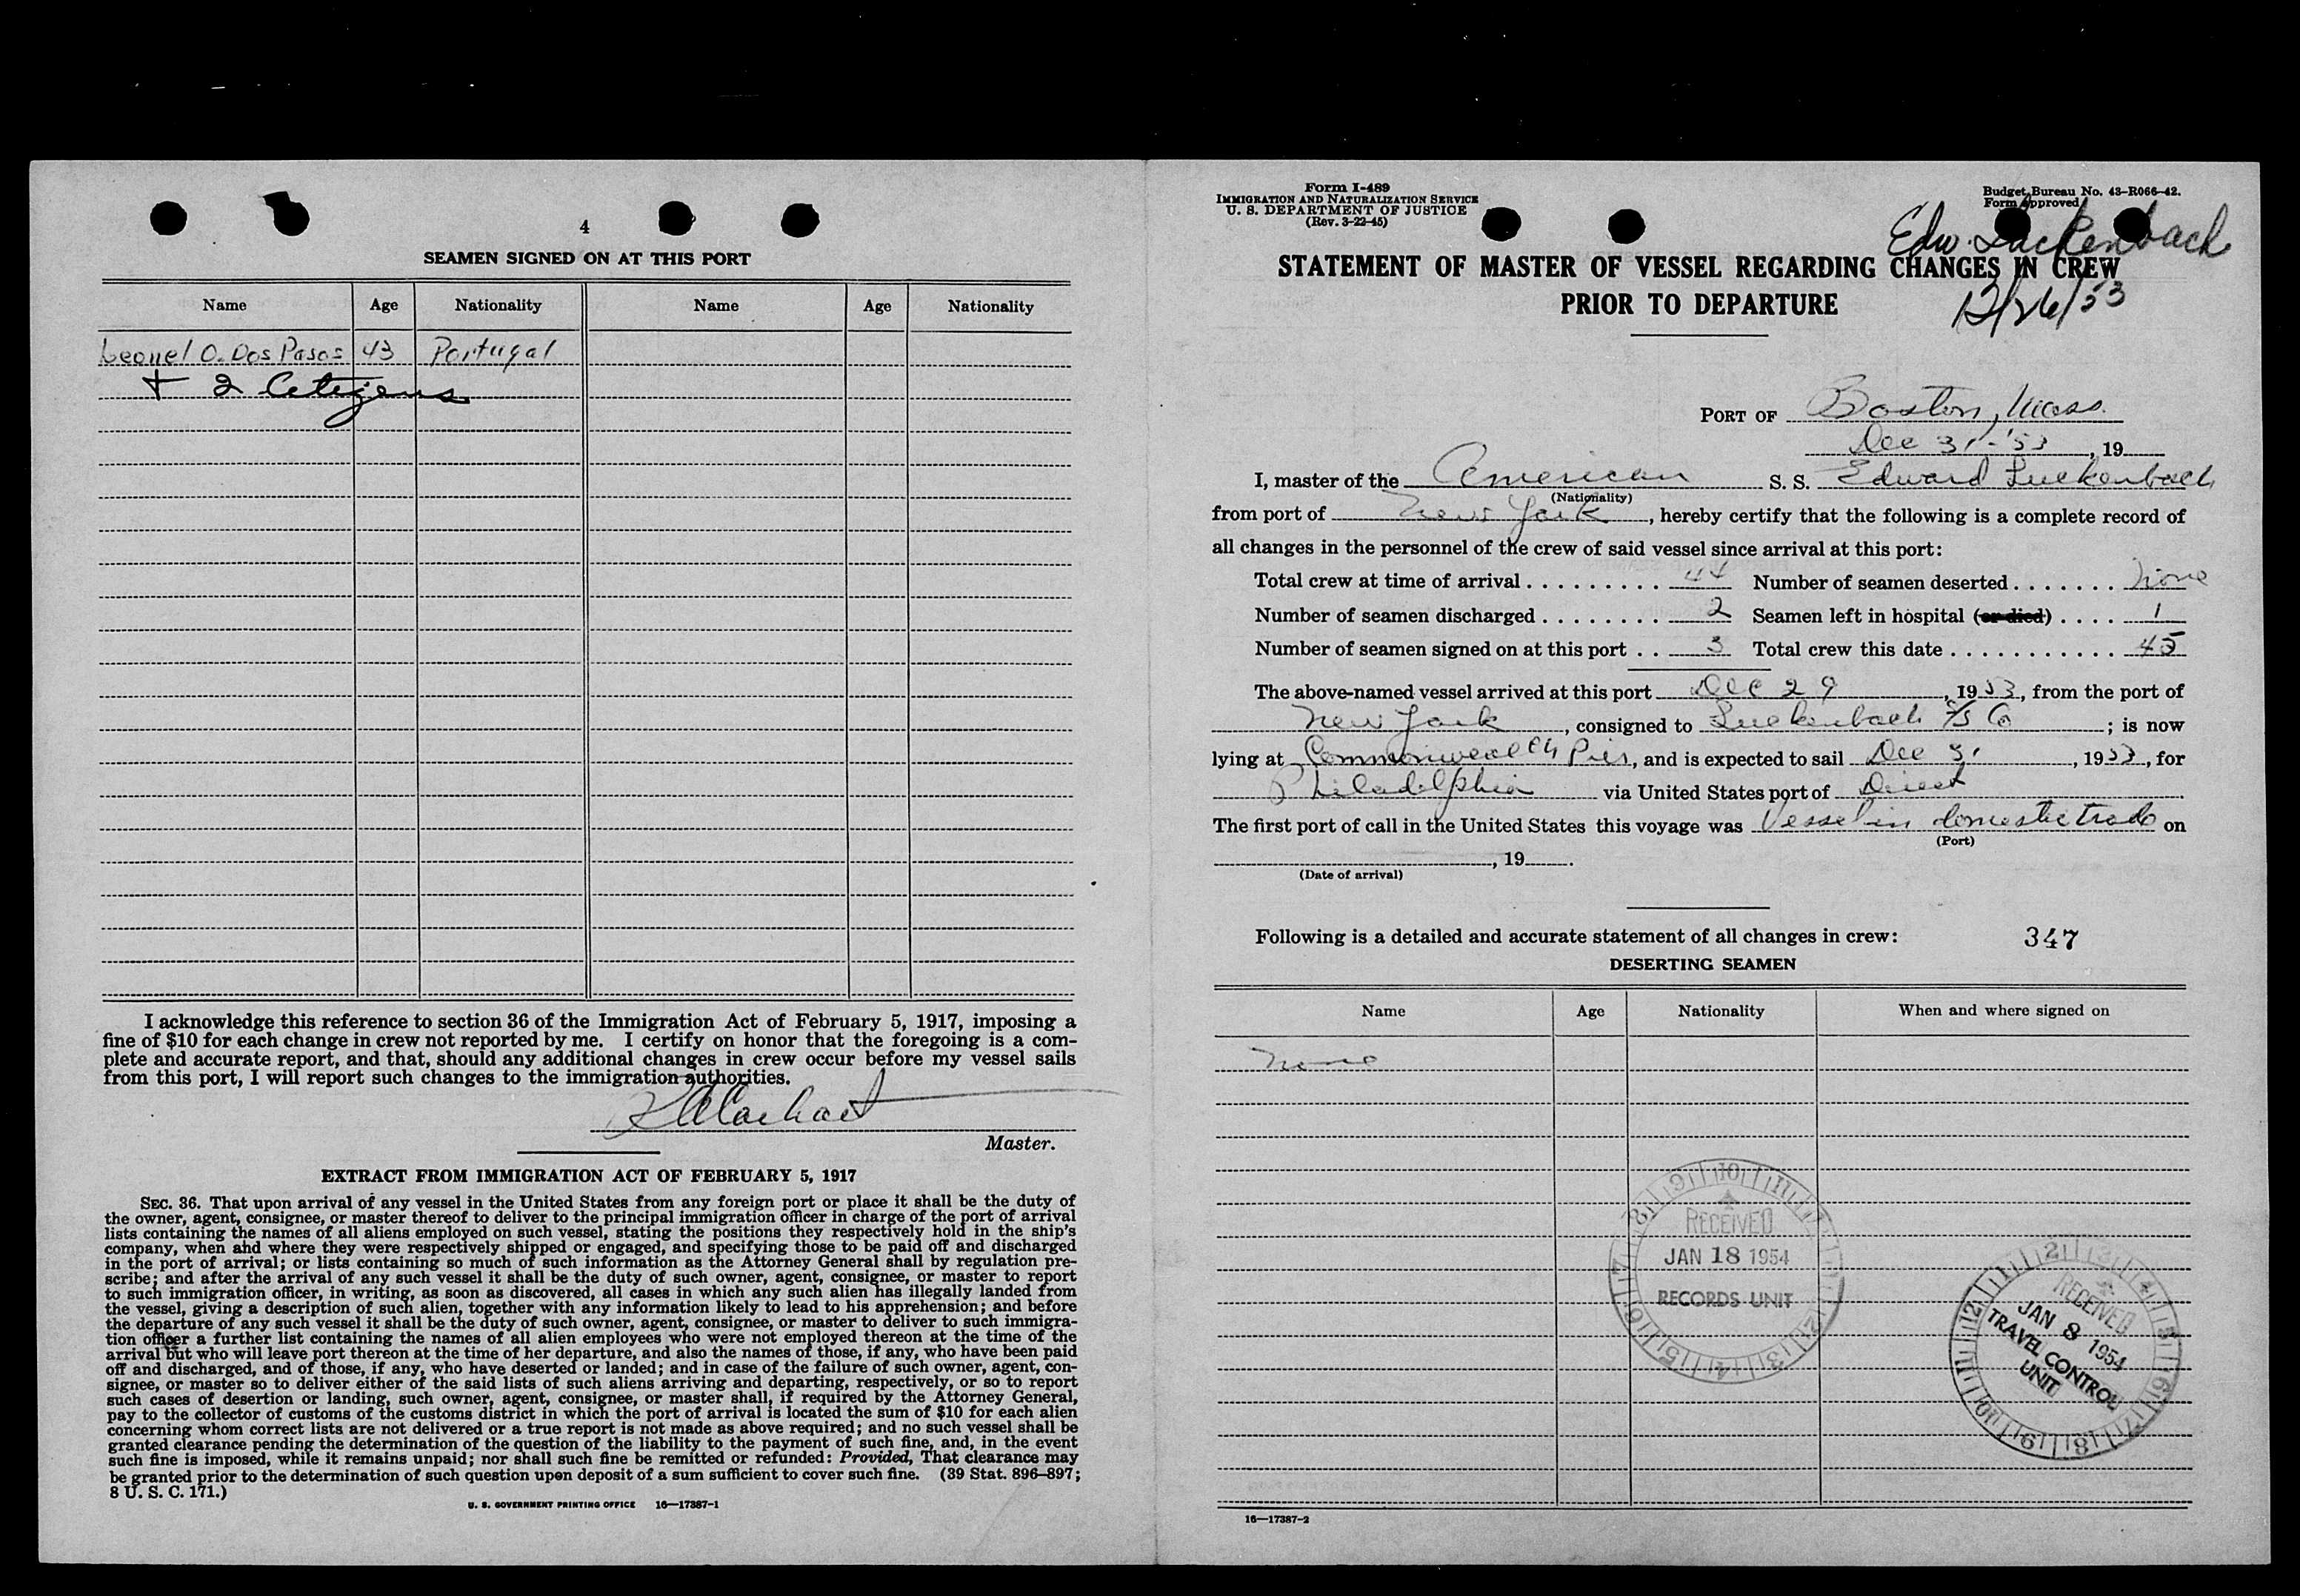 4
SEAMEN SIGNED ON AT THIS PORT
Name Age Nationality Name Age Nationality
Leonel O. Dos Pasos 43 Portugal
+ 2 Citizens
I acknowledge this reference to section 36 of the Immigration Act of February 5, 1917, imposing a
fine of $10 for each change in crew not reported by me. I certify on honor that the foregoing is a com-
plete and accurate report, and that, should any additional changes in crew occur before my vessel sails
from this port, I will report such changes to the immigration authorities.
Master.
EXTRACT FROM IMMIGRATION ACT OF FEBRUARY 5, 1917
SEC. 36. That upon arrival of any vessel in the United States from any foreign port or place it shall be the duty of
the owner, agent, consignee, or master thereof to deliver to the principal immigration officer in charge of the port of arrival
lists containing the names of all aliens employed on such vessel, stating the positions they respectively hold in the ship's
company, when and where they were respectively shipped or engaged, and specifying those to be paid off and discharged
in the port of arrival; or lists containing so much of such information as the Attorney General shall by regulation pre-
scribe; and after the arrival of any such vessel it shall be the duty of such owner, agent, consignee, or master to report
to such immigration officer, in writing, as soon as discovered, all cases in which any such alien has illegally landed from
the vessel, giving a description of such alien, together with any information likely to lead to his apprehension; and before
the departure of any such vessel it shall be the duty of such owner, agent, consignee, or master to deliver to such immigra-
tion officer a further list containing the names of all alien employees who were not employed thereon at the time of the
arrival but who will leave port thereon at the time of her departure, and also the names of those, if any, who have been paid
off and discharged, and of those, if any, who have deserted or landed; and in case of the failure of such owner, agent, con-
signee, or master so to deliver either of the said lists of such aliens arriving and departing, respectively, or so to report
such cases of desertion or landing, such owner, agent, consignee, or master shall, if required by the Attorney General,
pay to the collector of customs of the customs district in which the port of arrival is located the sum of $10 for each alien
concerning whom correct lists are not delivered or a true report is not made as above required; and no such vessel shall be
granted clearance pending the determination of the question of the liability to the payment of such fine, and, in the event
such fine is imposed, while it remains unpaid; nor shall such fine be remitted or refunded: Provided, That clearance may
be granted prior to the determination of such question upon deposit of a sum sufficient to cover such fine. (39 Stat. 896–897;
8 U. S. C. 171.)
U. S. GOVERNMENT PRINTING OFFICE 16—17387-1
Form I-489
IMMIGRATION AND NATURALIZATION SERVICE
U. S. DEPARTMENT OF JUSTICE
(Rev. 3-22-45)
Budget Bureau No. 43-R066-42.
Form approved
Edw. Luckenbach
STATEMENT OF MASTER OF VESSEL REGARDING CHANGES IN CREW
PRIOR TO DEPARTURE
12/26/53
PORT OF Boston, Mass.
Dec 31 - '53, 19
I, master of the American S. S. Edward Luckenbach
(Nationality)
from port of New York, hereby certify that the following is a complete record of
all changes in the personnel of the crew of said vessel since arrival at this port:
Total crew at time of arrival 44 Number of seamen deserted None
Number of seamen discharged 2 Seamen left in hospital (or died) 1
Number of seamen signed on at this port 3 Total crew this date 45
The above-named vessel arrived at this port Dec 29, 1953, from the port of
New York, consigned to Luckenbach S/S Co; is now
lying at Commonwealth Pier, and is expected to sail Dec 31, 1953, for
Philadelphia via United States port of Direct
The first port of call in the United States this voyage was Vessel in domestic trade on
(Port)
, 19 .
(Date of arrival)
Following is a detailed and accurate statement of all changes in crew: 347
DESERTING SEAMEN
Name Age Nationality When and where signed on
None
RECEIVED
JAN 18 1954
RECORDS UNIT
RECEIVED
JAN 8 1954
TRAVEL CONTROL
UNIT
16—17387-2